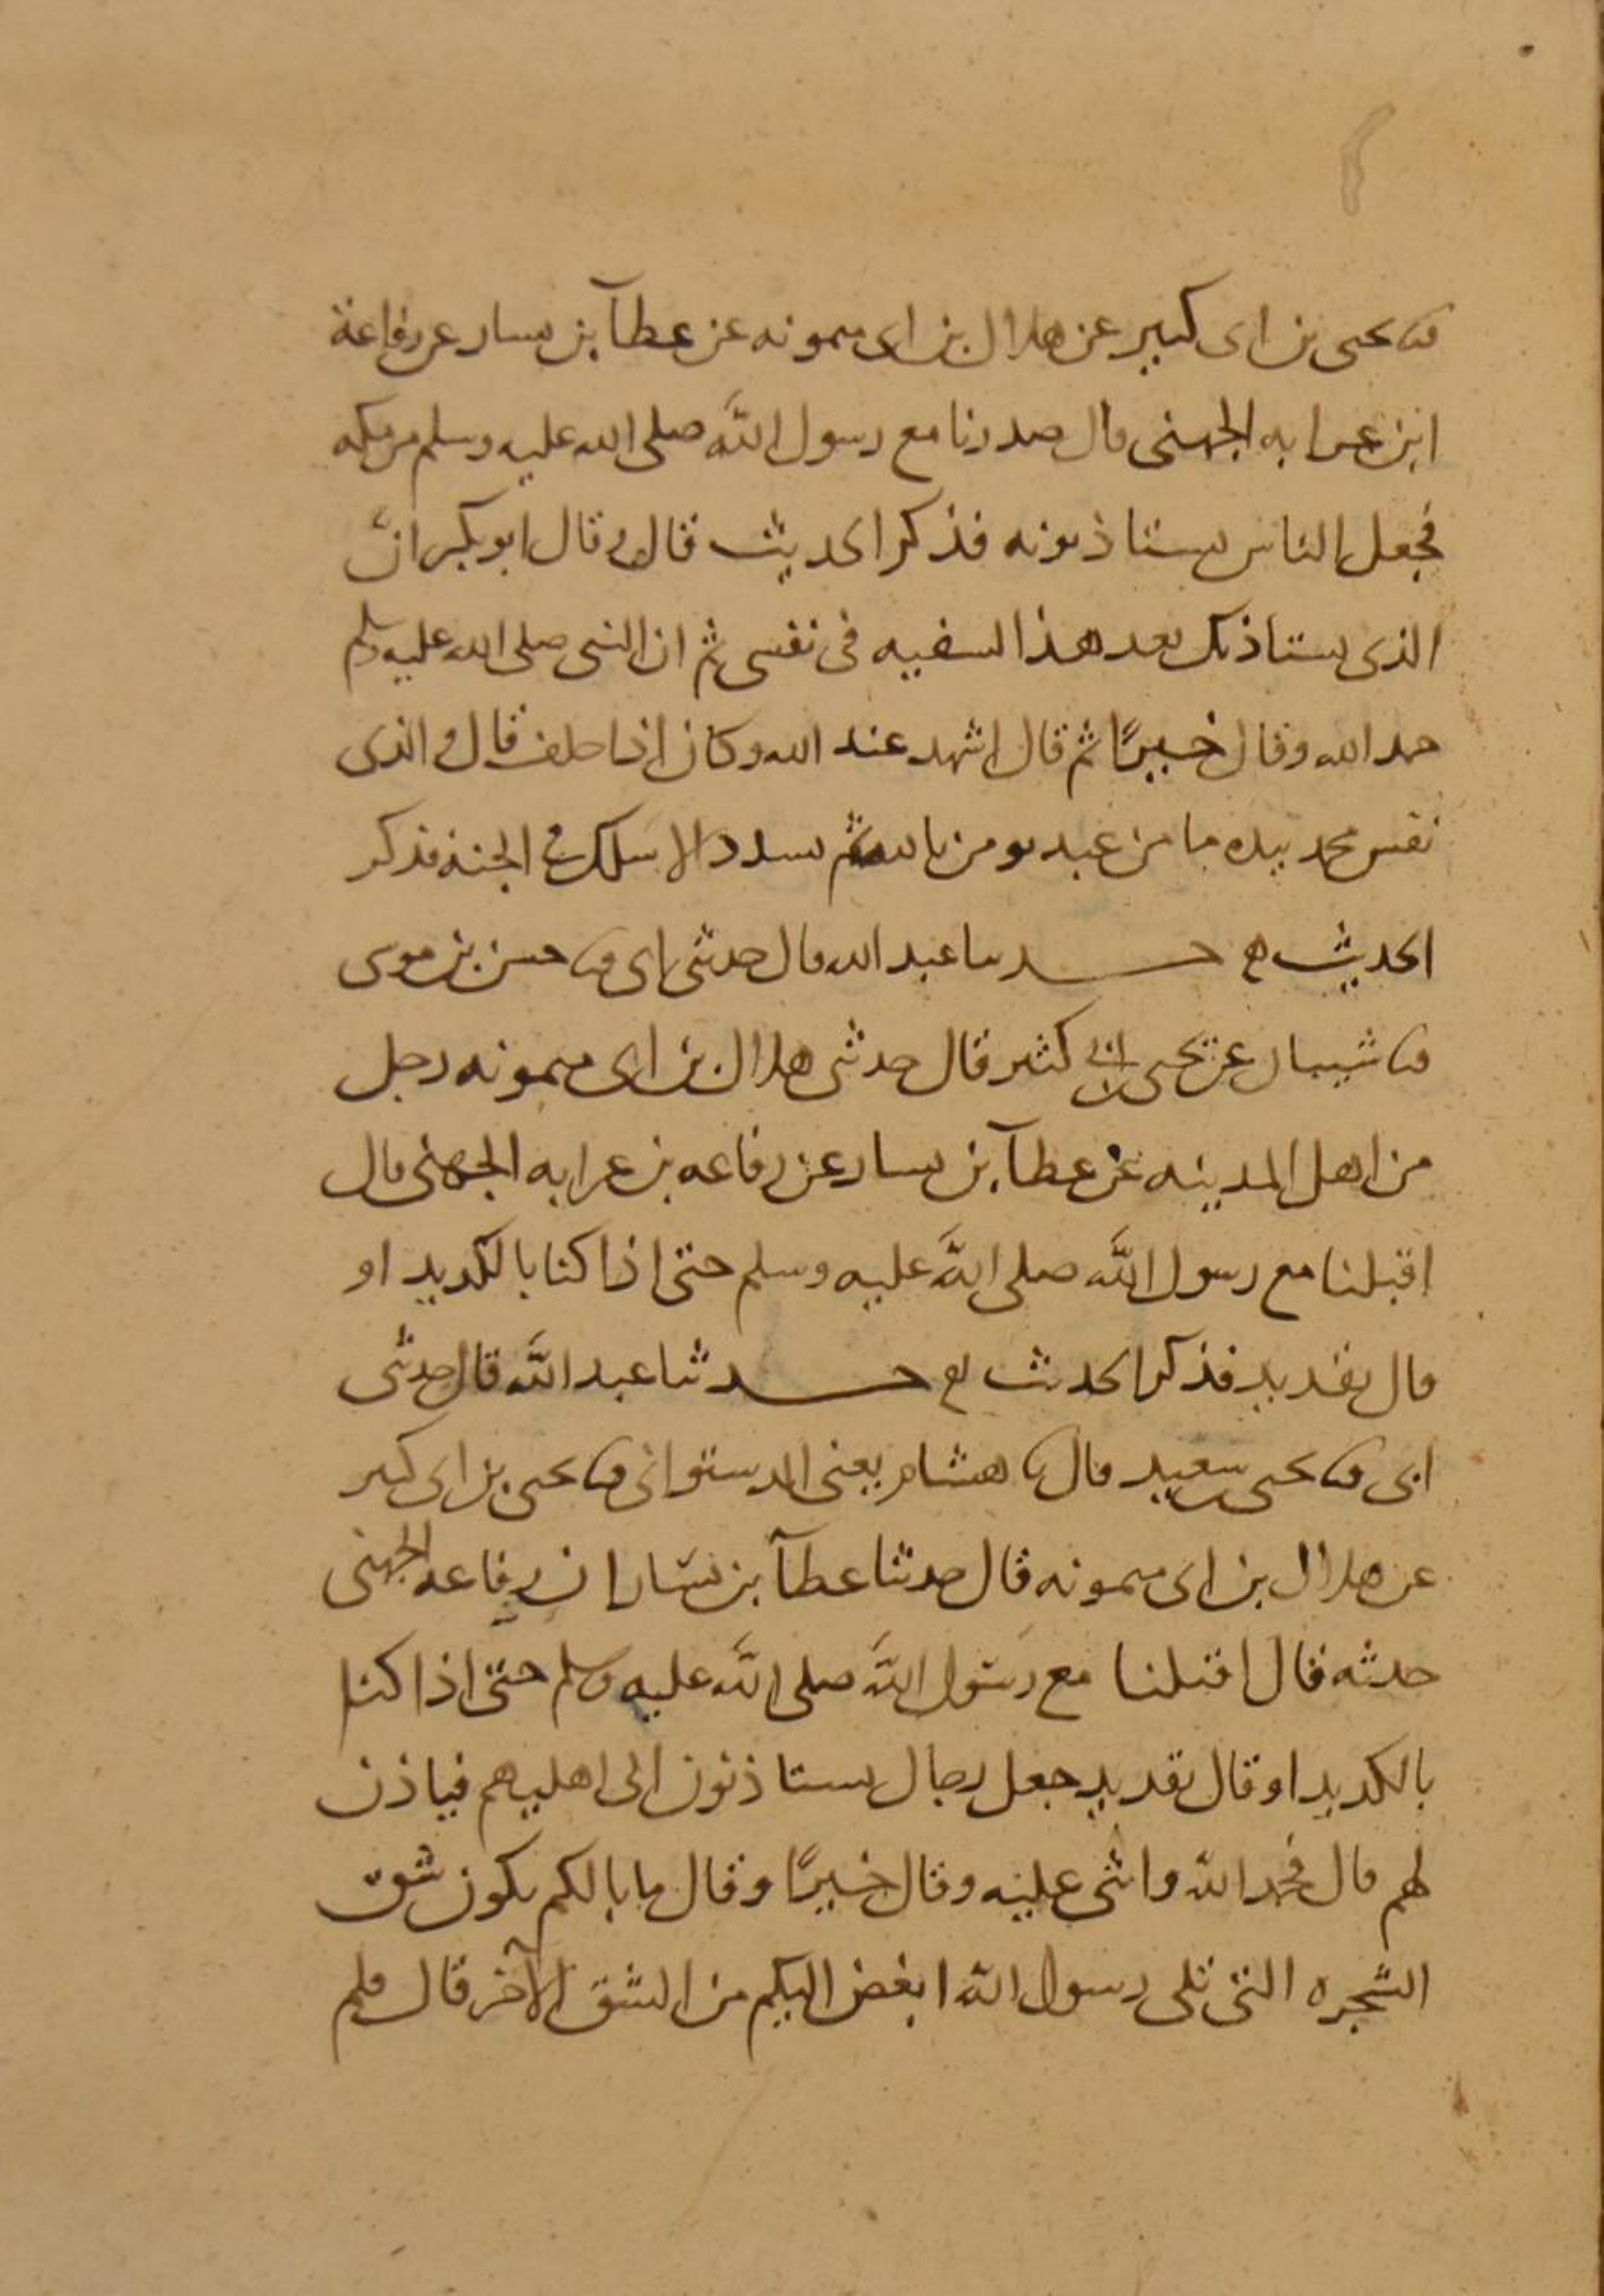 ثنا يحيى بن ابى كبير عن هلال بن ابى ميمونه عن عطآ بن يسار عن رفاعة
ابن عرابه الجهنى قال صدرنا مع رسول الله صلى الله عليه وسلم من مكه
فجعل الناس يستاذنونه فذكر الحديث قال وقال ابو بكر ان
الذى يستاذنك بعد هذا لسفيه فى نفسى ثم ان النبى صلى الله عليه وسلم
حمد الله وقال خيرًا ثم قال اشهد عند الله وكان اذا حلف قال والذى
نفس محمد بيده ما من عبد يومن بالله ثم يسدد الا سلك فى الجنة فذكر
الحديث حدثنا عبد الله قال حدثنى ابى ثنا حسن بن موسى
ثنا شيبان عن يحيى بن ابى كثير قال حدثنى هلال بن ابى ميمونه رجل
من اهل المدينه عن عطآ بن يسار عن رفاعه بن عرابه الجهنى قال
اقبلنا مع رسول الله صلى الله عليه وسلم حتى اذا كنا بالكديد او
قال بقديد فذكر الحديث حدثنا عبد الله قال حدثنى
ابى ثنا يحيى بن سعيد قال ثنا هشام يعنى الدستوانى ثنا يحيى بن ابى كثير
عن هلال بن ابى ميمونه قال حدثنا عطآ بن يسار ان رفاعه الجهنى
حدثه قال اقبلنا مع رسول الله صلى الله عليه وسلم حتى اذا كنا
بالكديد او قال بقديد جعل رجال يستاذنون الى اهليهم فياذن
لهم قال فحمد الله واثنى عليه وقال خيرًا وقال ما بالكم يكون شق
الشجره التى تلى رسول الله ابغض اليكم من الشق الآخر قال فلم